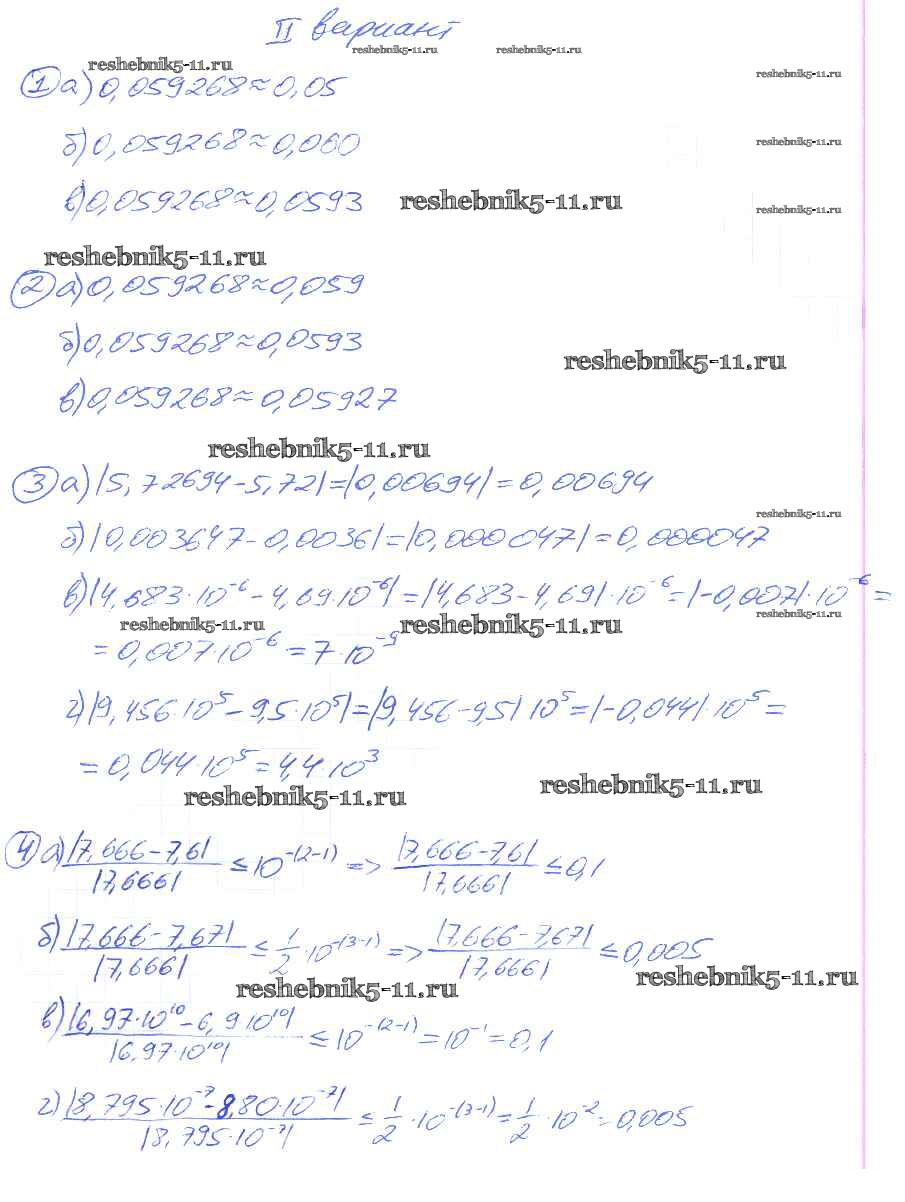 II вариант
reshebnik5-11.ru reshebnik5-11.ru
reshebnik5-11.ru
reshebnik5-11.ru
① а) 0,059268≈0,05
б) 0,059268≈0,060
reshebnik5-11.ru
в) 0,059268≈0,0593
reshebnik5-11.ru
reshebnik5-11.ru
reshebnik5-11.ru
② а) 0,059268≈0,059
б) 0,059268≈0,0593
reshebnik5-11.ru
в) 0,059268≈0,05927
reshebnik5-11.ru
③ а) |5,72694-5,72|=|0,00694|=0,00694
reshebnik5-11.ru
б) |0,003647-0,0036|=|0,000047|=0,000047
в) |4,683·10⁻⁶-4,69·10⁻⁶|=|4,683-4,69|·10⁻⁶=|-0,007|·10⁻⁶=
reshebnik5-11.ru
reshebnik5-11.ru reshebnik5-11.ru
=0,007·10⁻⁶=7·10⁻⁹
г) |9,456·10⁵-9,5·10⁵|=|9,456-9,5|10⁵=|-0,044|·10⁵=
=0,044·10⁵=4,4·10³
reshebnik5-11.ru reshebnik5-11.ru
④ а) |7,666-7,6|/|7,666| ≤ 10⁻⁽²⁻¹⁾ => |7,666-7,6|/|7,666| ≤ 0,1
б) |7,666-7,67|/|7,666| ≤ 1/2·10⁻⁽³⁻¹⁾ => |7,666-7,67|/|7,666| ≤ 0,005
reshebnik5-11.ru reshebnik5-11.ru
в) |6,97·10¹⁰-6,9 10¹⁰|/|6,97·10¹⁰| ≤ 10⁻⁽²⁻¹⁾=10⁻¹=0,1
г) |8,795·10⁻⁷-8,80·10⁻⁷|/|8,795·10⁻⁷| ≤ 1/2·10⁻⁽³⁻¹⁾=1/2·10⁻²=0,005